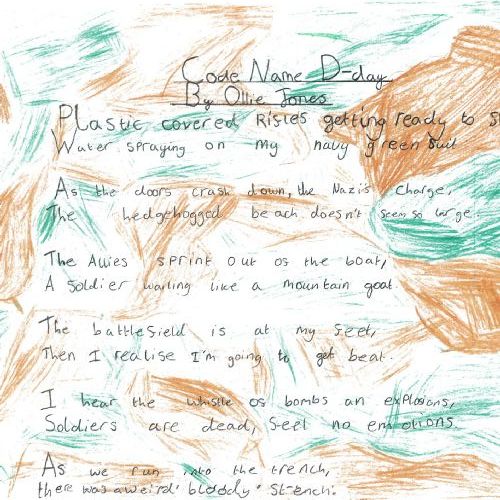 Code Name D-day
By Ollie Jones
Plastic covered Rifles getting ready to s
Water spraying on my navy green suit
As the doors crash down, the Nazis charge,
The hedgehogged beach doesn't seem so large.
The Allies sprint out of the boat,
A Soldier wailing like a mountain goat.
The battlefield is at my feet,
Then I realise I'm going to get beat.
I hear the whistle of bombs an explosions,
Soldiers are dead, feel no emotions
As we run into the trench,
there was a weird 'bloody' stench.